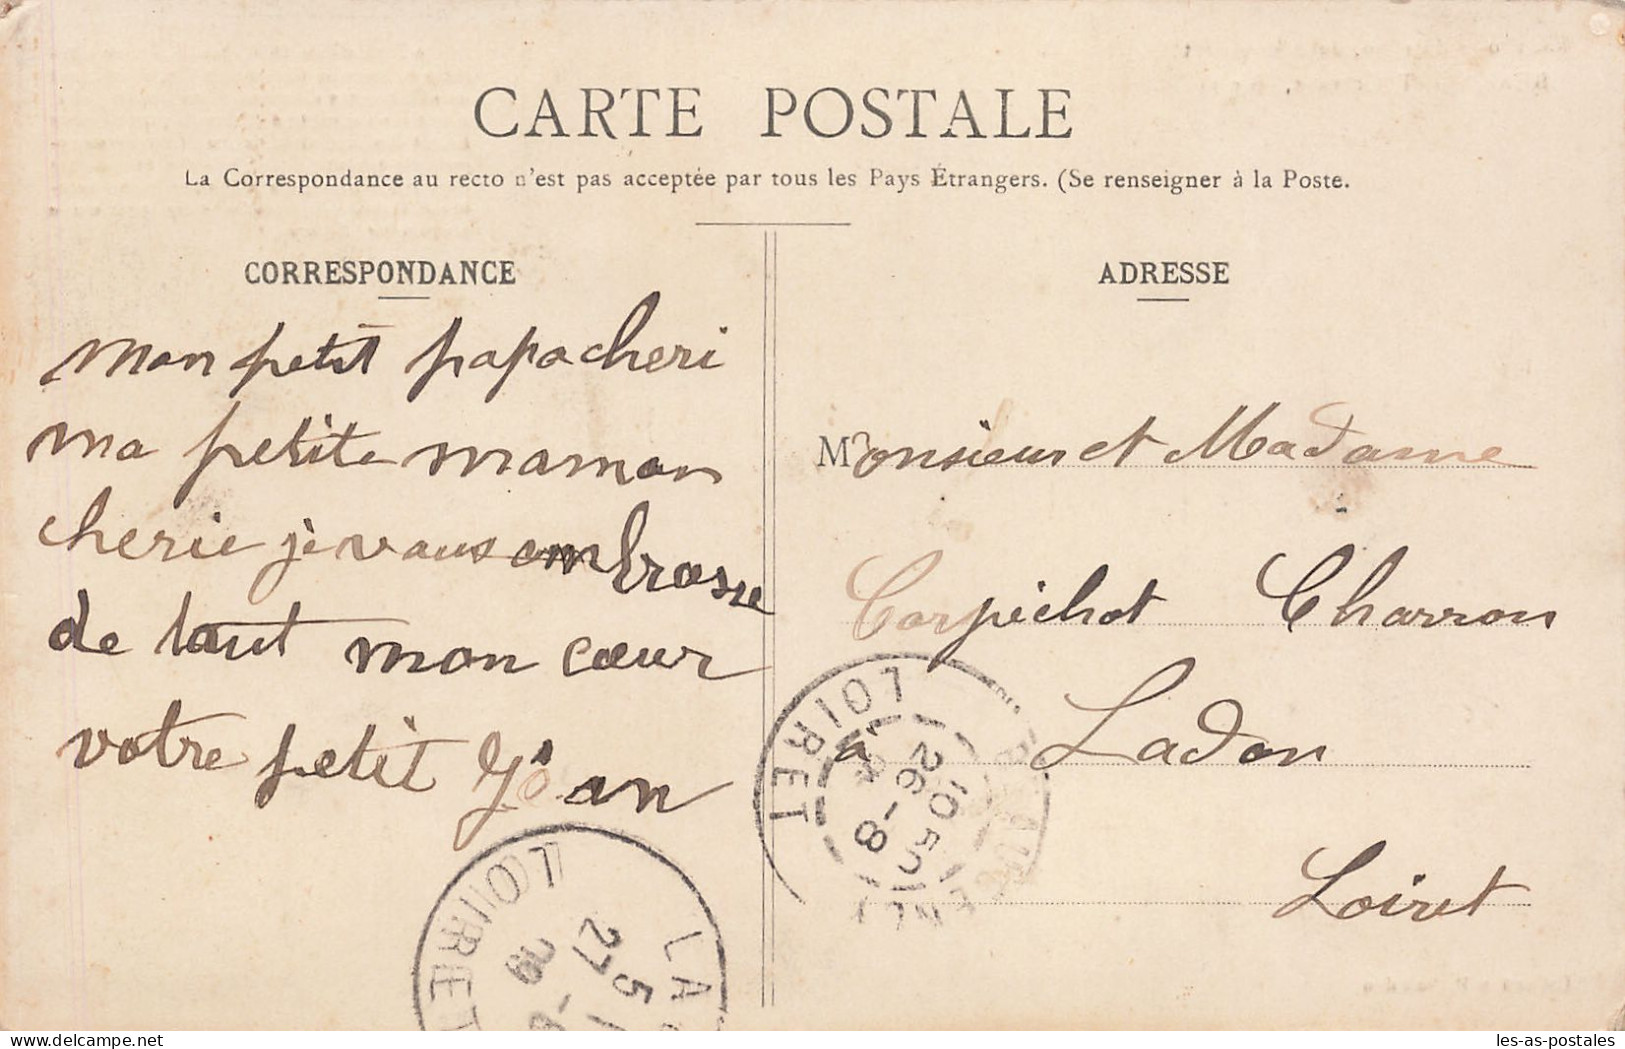 CARTE POSTALE
La Correspondance au recto n'est pas acceptée par tous les Pays Étrangers. (Se renseigner à la Poste.
CORRESPONDANCE
mon petit papa cheri
ma petite maman
cherie je vous embrasse
de tout mon cœur
votre petit
ADRESSE
Monsieur et Madame
Carpichot Charron
à Ladon
Loiret
LOIRET
10 50
26 -8
LOIRET
LA
5
27 -8
09
delcampe.net
les-as-postales